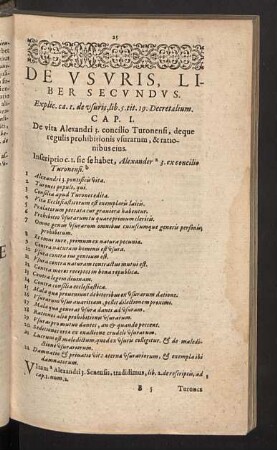 25
DE VSVRIS, LI-
BER SECVNDVS.
Explic. ca. 1. de vsuris, lib. 5. tit. 19. Decretalium.
CAP. I.
De vita Alexandri 3. concilio Turonensi, deque
regulis prohibitionis vsurarum, & ratio-
nibus eius.
Inscriptio c. 1. sic se habet, Alexander a 3. ex concilio
Turonensi. b
1 Alexandri 3. pontificis vita.
2 Turones populi, qui.
3 Concilia apud Turones edita.
4 Vita Ecclesiasticorum est exemplaris laicis.
5 Prælatorum peccata cur grauiora habentur.
6 Prohibitio vsurarum tu quare primum clericis.
7 Omne genus vsurarum omnibus cuiuscunque generis personis,
prohibitum.
8
9 Contra
10 Vsura contra eum gentium est.
11 Vsura contra naturam contractus mutui est.
12 Contra mores receptos in bona republica.
13 Contra legem diuinam.
14 Contra consilia ecclesiastica.
15 Mala quæ proueniunt debitoribus ex vsurarum datione.
16 Vsurarum vsus auaritiem, pestis discentem em penuriæ.
17 Mala quæ genera vsura danti ad vsuram.
18 Rationes aliæ prohibitionis vsurarum.
19 Vsuras prumutuo dantes, an & quando peccent.
20
21 Lucrum est maledictum, quod ex vsuris colligitur, & de maledi-
ctione vsurariorum.
22 Damnatio & priuatio vitæ æterna vsurariorum, & exempla ibi
damnatorum.
Vitam a Alexandri 3. Senensis, tradidimus, lib. 2. de rescriptis, ad
cap. 1. num. 2.
B 3
Turones